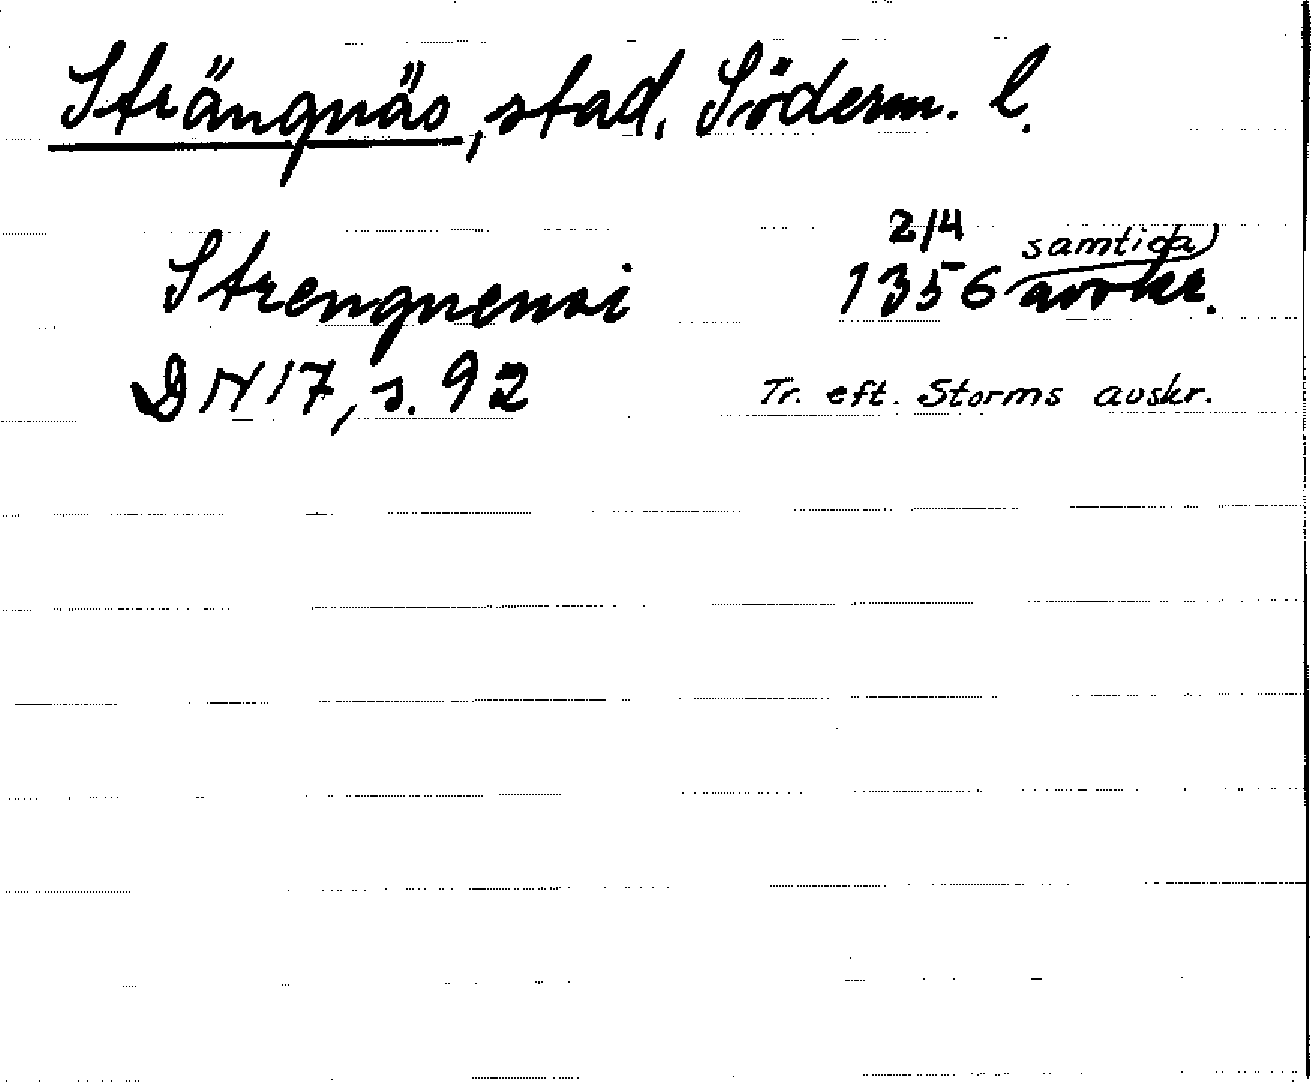 Strängnäs, stad, Söderm. l.
Strengnensi 2/4 1356 samtida avskr.
DN 17, s. 92 Tr. eft. Storms avskr.